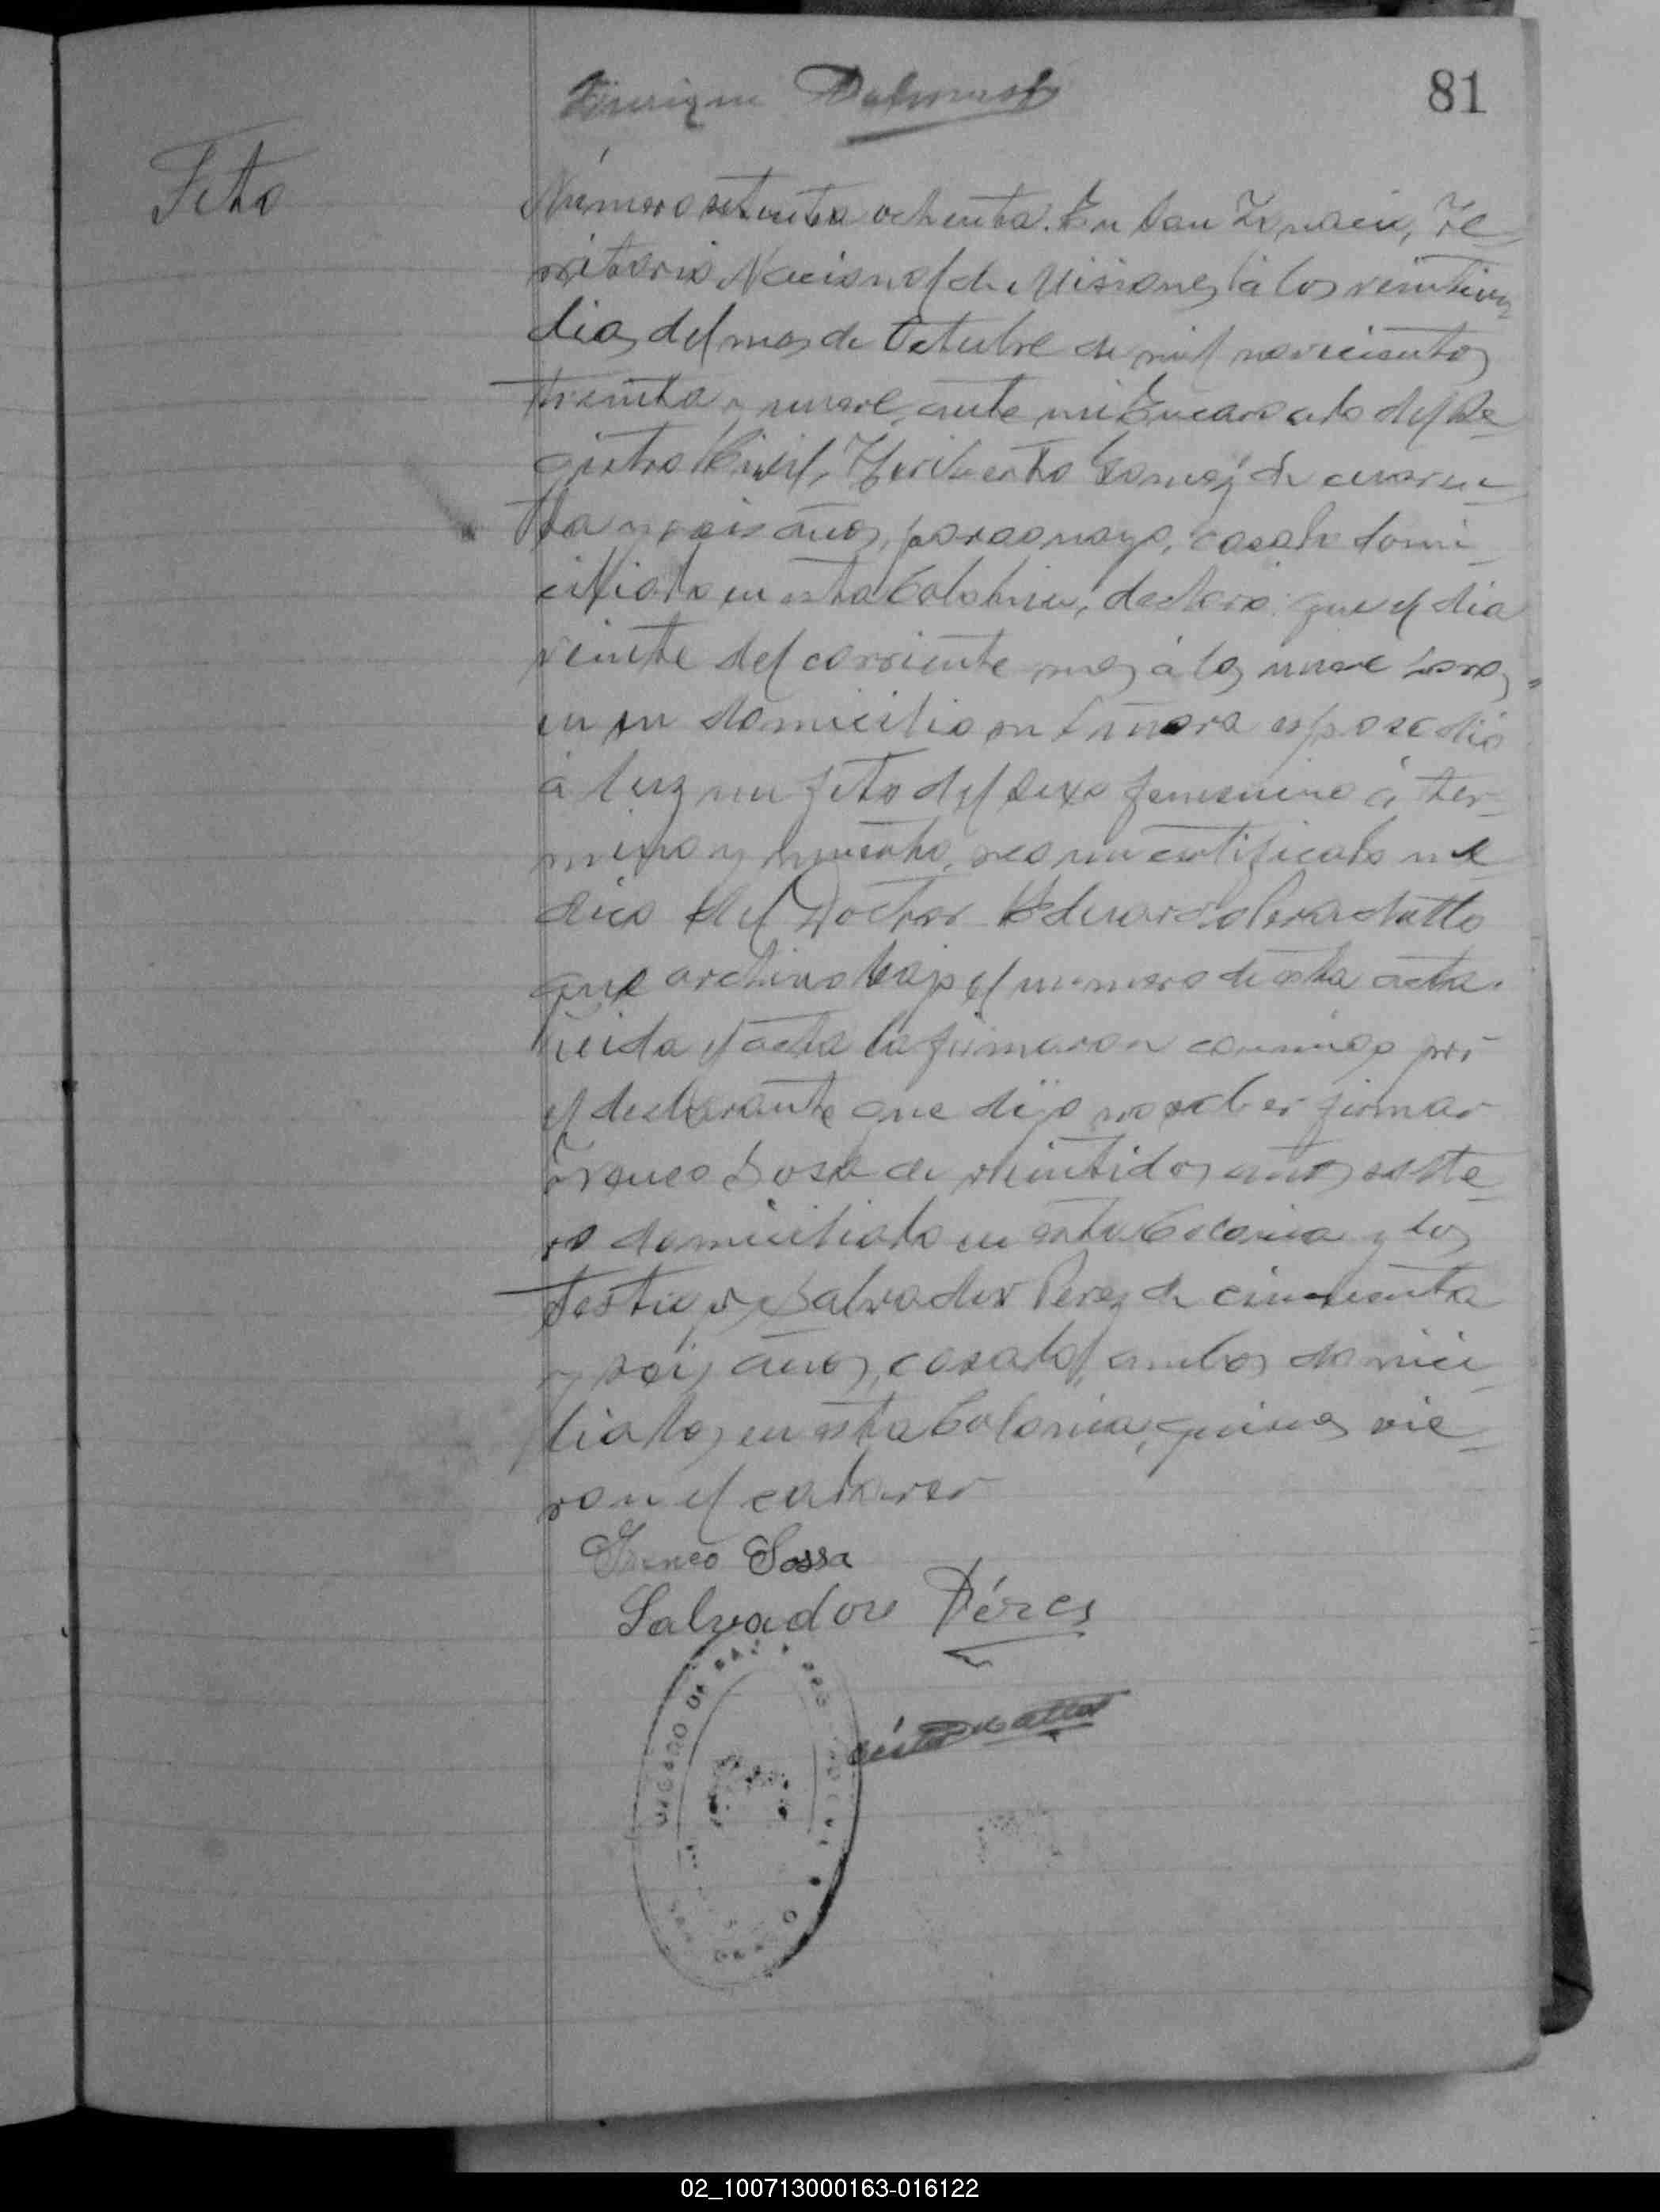 81
Feto
Número setenta ochenta. En San Ignacio, Te-
rritorio Nacional de Misiones, á los veintiun
dias del mes de Octubre de mil novecientos
treinta y nueve, ante mi Encargado del Re-
gistro Civil, Heriberto Gomez de cuaren-
ta y seis años, paraguayo, casado domi-
ciliado en esta Colonia, declaró: que el dia
veinte del corriente mes á las nueve horas
en su domicilio su señora esposa dió
á luz un feto del sexo femenino á ter-
mino y muerto, segun certificado me-
dico del Doctor Eduardo
que archivo bajo el numero de esta acta.
Leida el acta la firmaron conmigo por
el declarante que dijo no saber firmar
Franco Sosa de veintidos años solte-
ro domiciliado en esta Colonia y los
testigos Salvador Perez de cincuenta
y seis años, casado, ambos domici-
liados en esta Colonia, quienes vie-
ron el cadaver
Franco Sossa
Salvador Péres
02_100713000163-016122